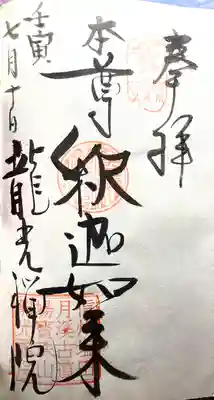 奉拝
本尊釈迦如来
壬寅
七月十日 龍光禅院